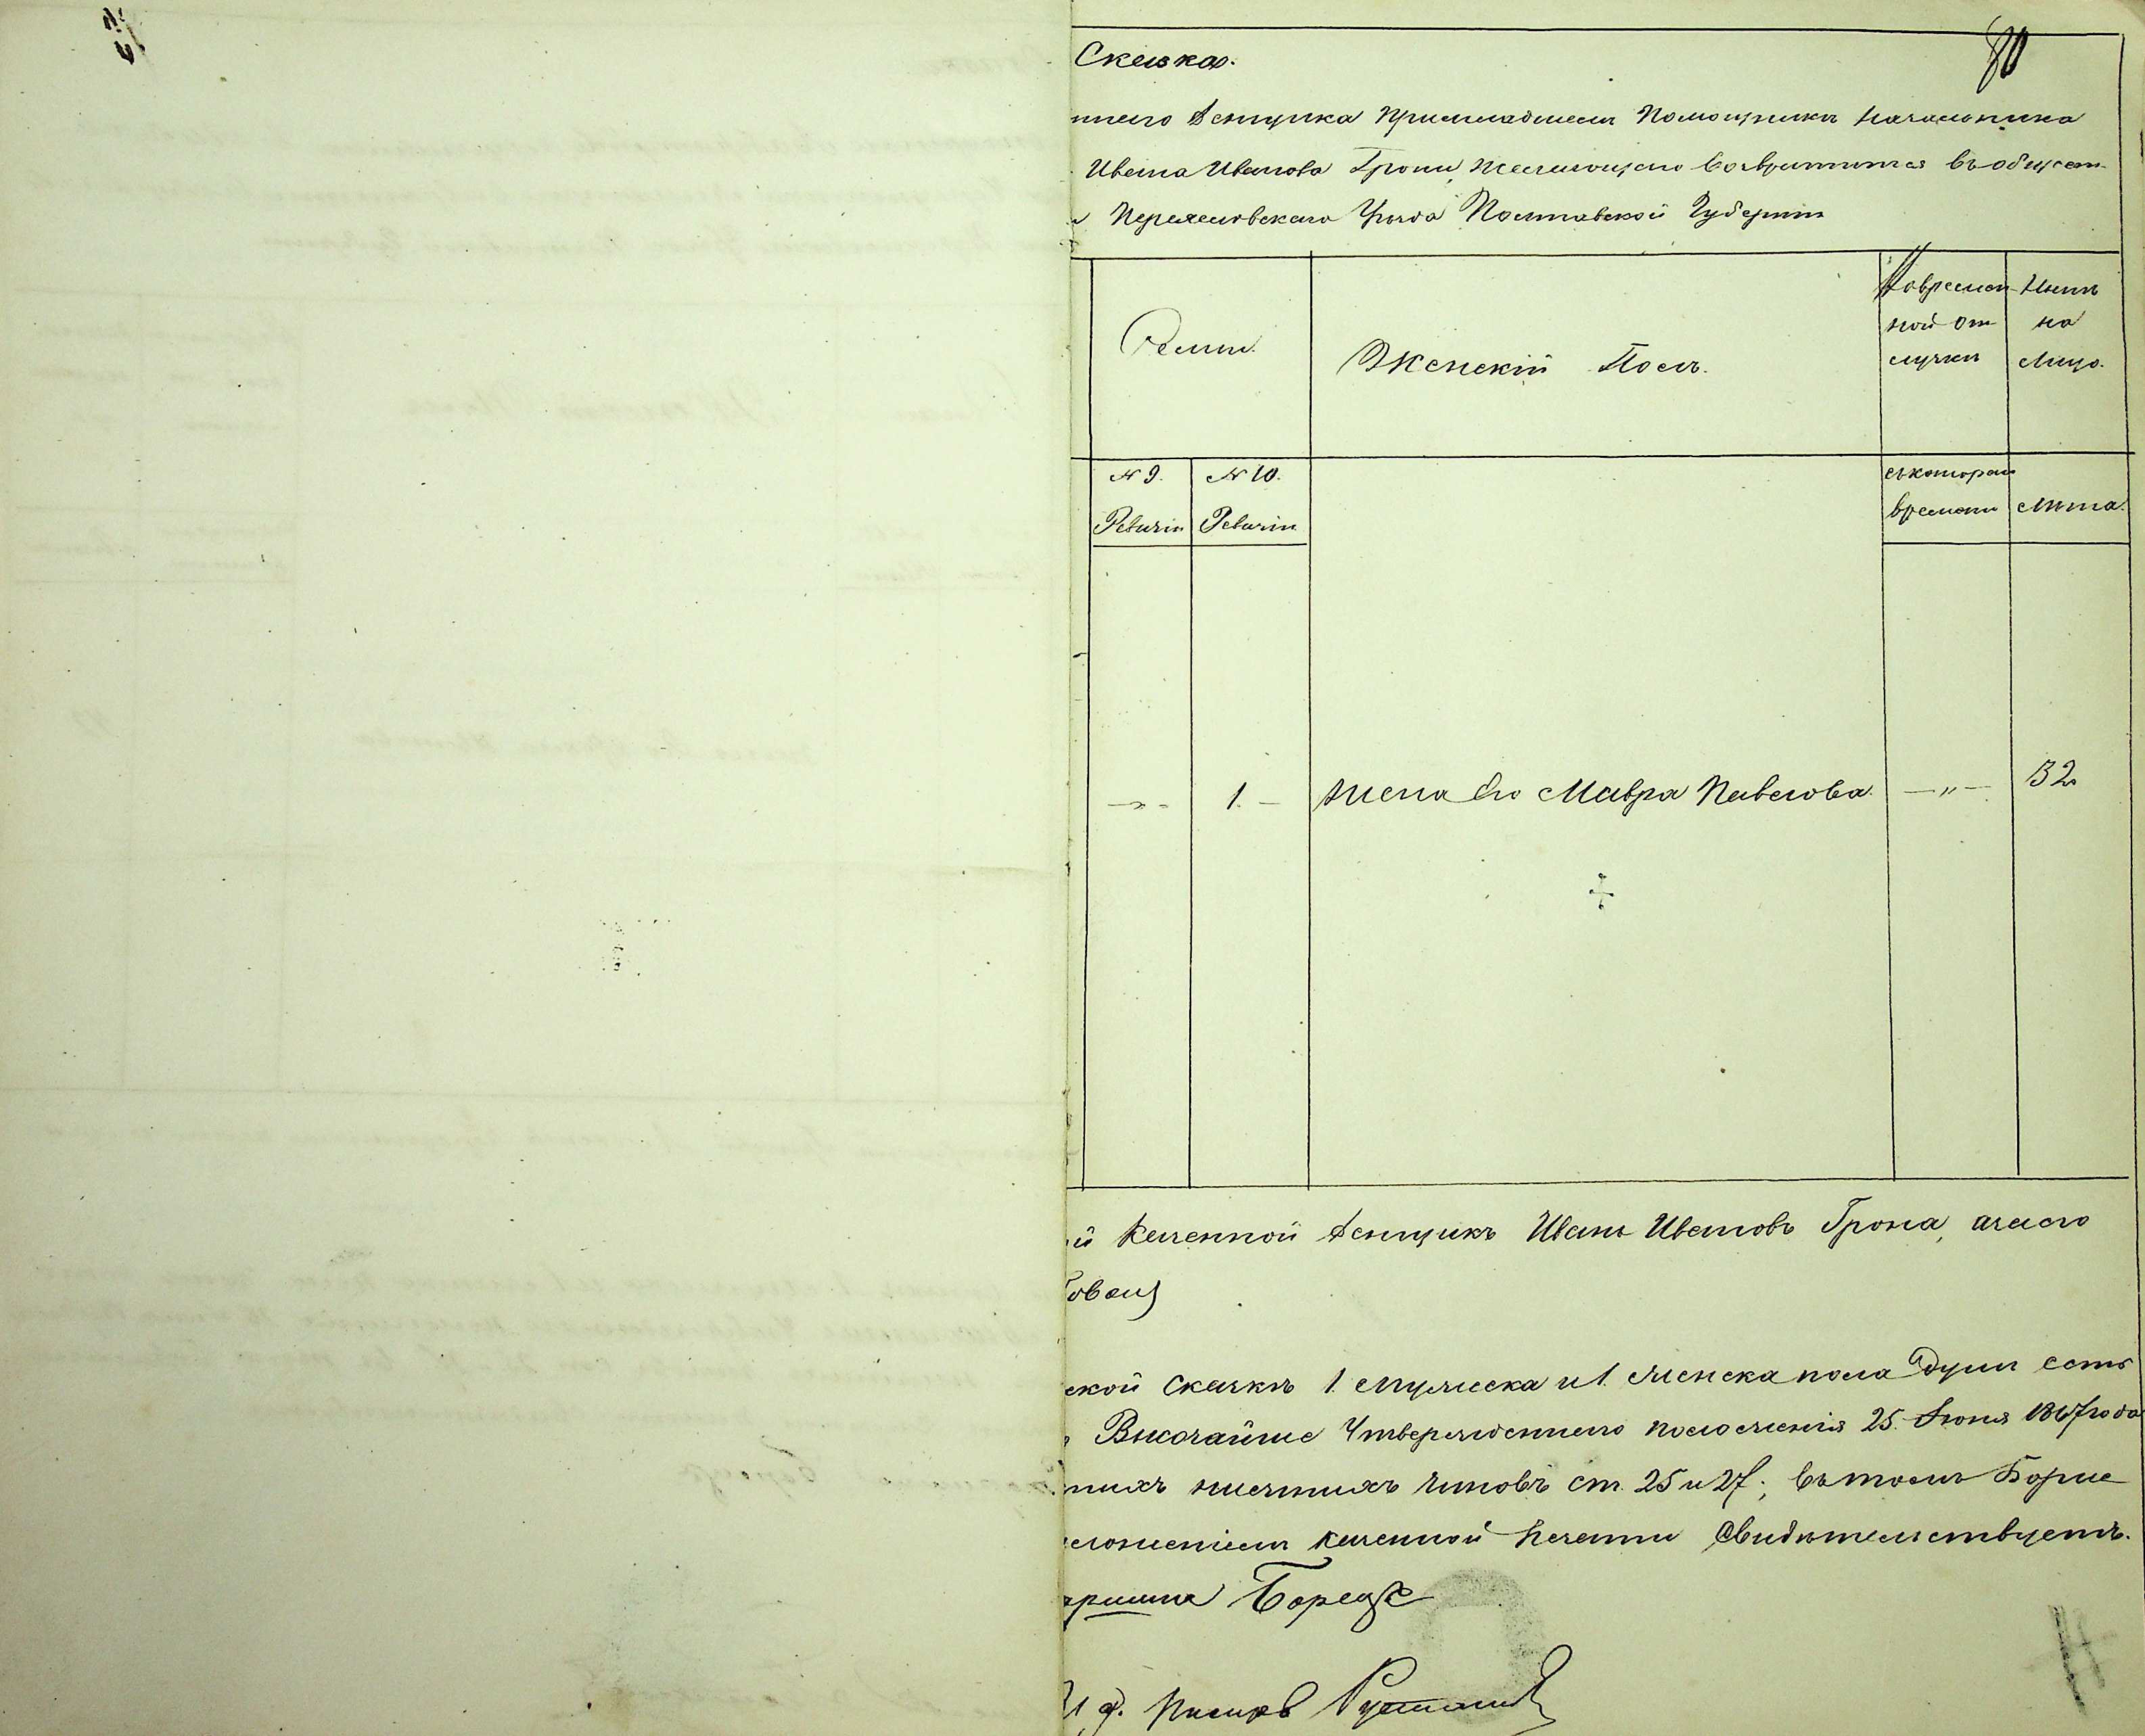 Сказка.
80
ннаго Денщика При младшемъ Помощникѣ Начальника
Ивана Иванова Грони, желающаго Возвратится въ общест-
Переяславскаго Уѣзда Полтавской Губерніи
Ревиз.
Женскій Полъ.
Во времен-
ной от
лучкѣ
Нынѣ
на
Лицо.
N 9.
Ревизіи
N 10.
Ревизіи
съ котораго
времени
Лѣта.
— " —
1. —
жена Его Мавра Павлова.
— " —
32
й Казенной Денщикъ Иванъ Ивановъ Грона, а за его
ской Сказкѣ 1. мужеска и 1. женска пола душъ есть
Высочайше Утвержденнаго положенія 25. Іюня 1867 года
нихъ нижнихъ чиновъ ст. 25 и 27; въ томъ Борис
ложеніемъ казенной печати Свидѣтельствуетъ.
аршина
И. д. Писарь